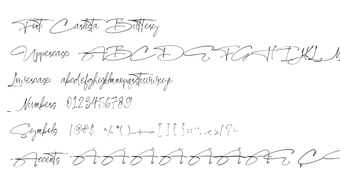 Font Carista Buttery
Uppercase ABCDEFGHIJKLM
Lowercase abcdefghijklmnopqrstuvwxyz
Numbers 0123456789
Symbols
Accents